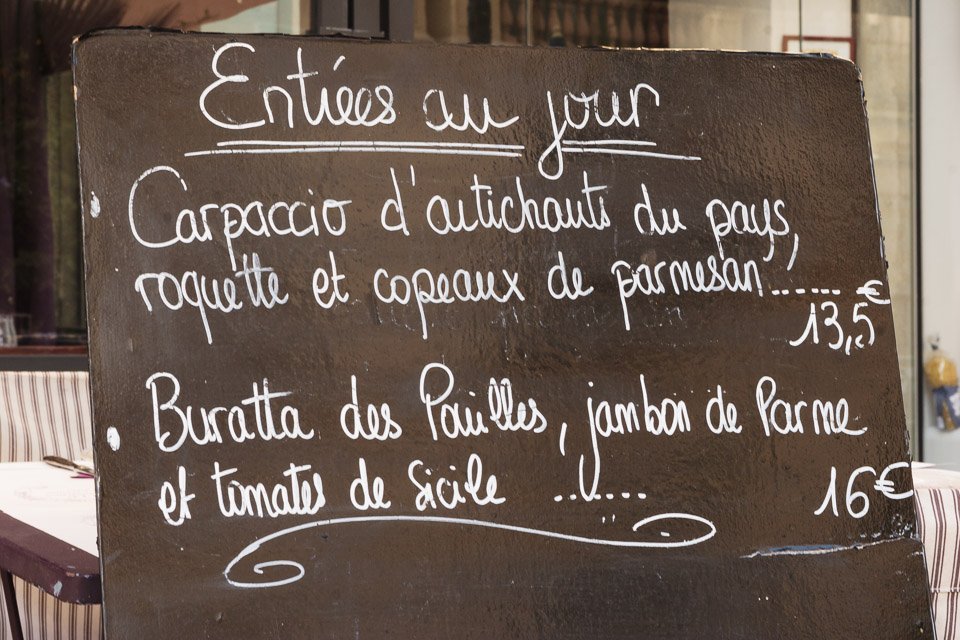 Entrées au jour
Carpaccio d'artichauts du pays,
roquette et copeaux de parmesan...... €
13,5
Buratta des Pouilles, jambon de Parme
et tomates de Sicile ...... 16€